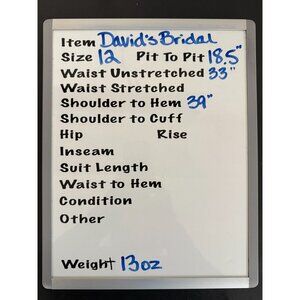 Item David's Bridal
Size 12 Pit To Pit 18.5"
Waist Unstretched 33"
Waist Stretched
Shoulder to Hem 39"
Shoulder to Cuff
Hip Rise
Inseam
Suit Length
Waist to Hem
Condition
Other
Weight 13oz